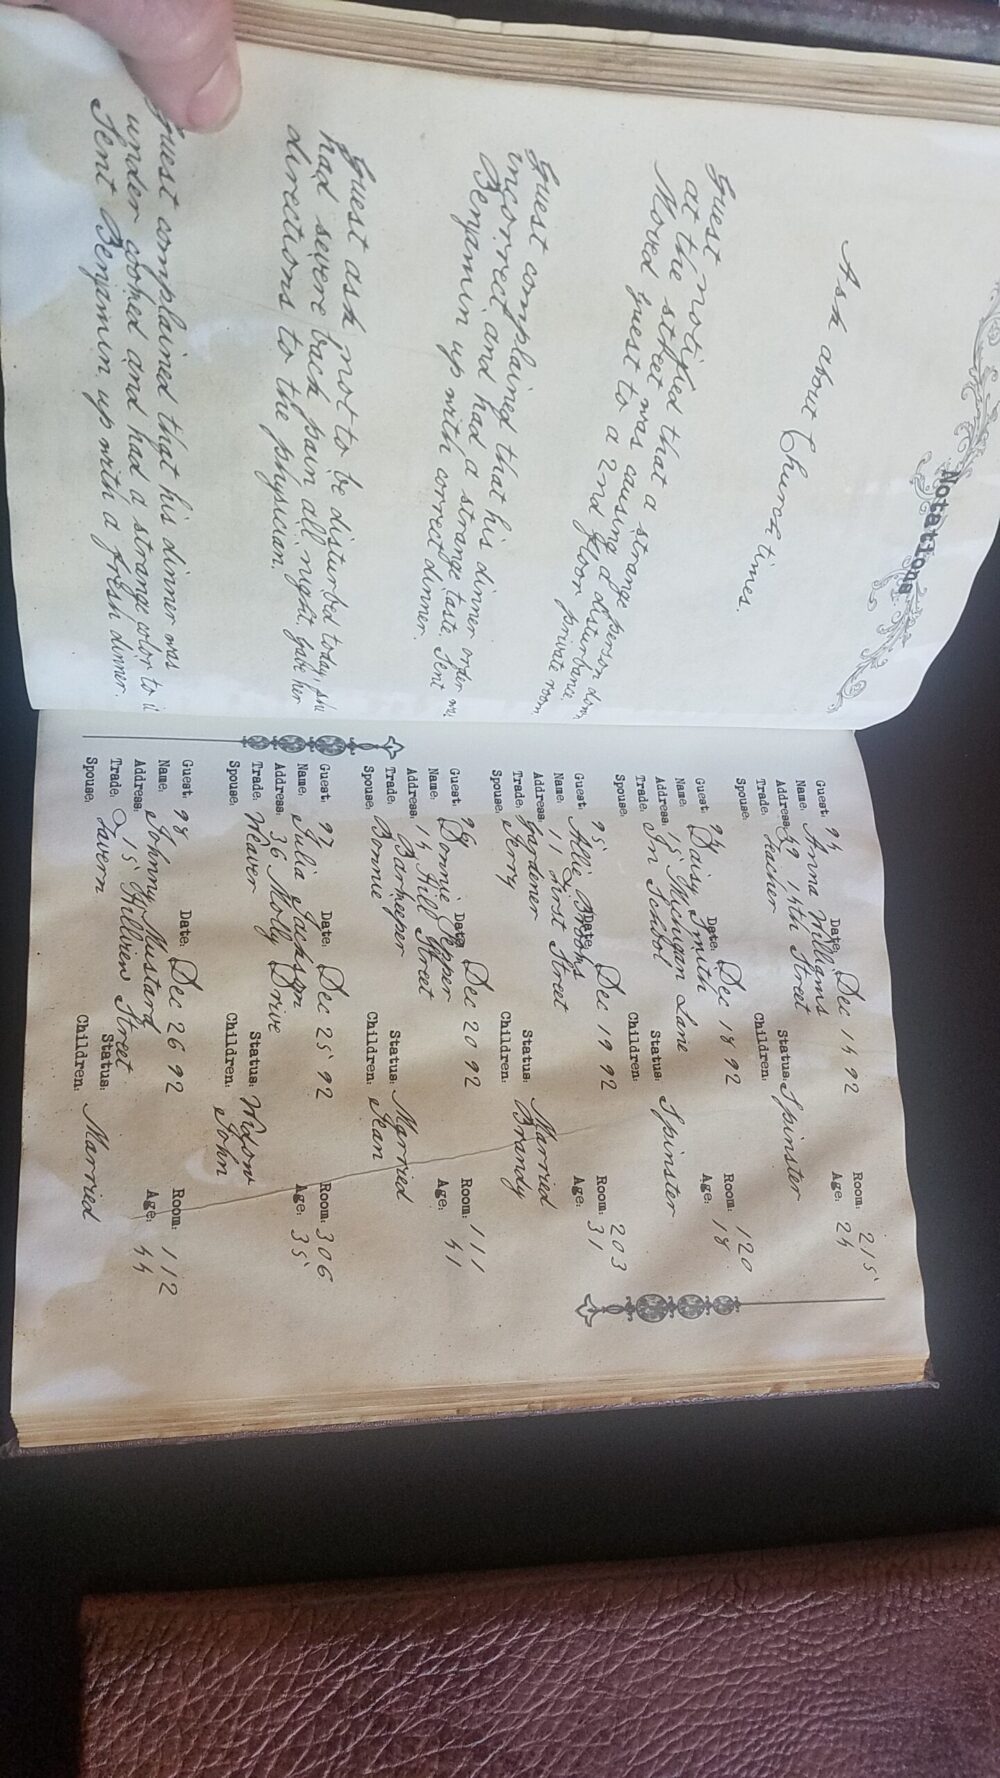 Notations
Ask about Church times.
Guest notified that a strange person down
at the street was causing a disturbance.
Moved guest to a 2nd floor private room
Guest complained that his dinner order was
incorrect, and had a strange taste. Sent
Benjamin up with correct dinner.
Guest ask not to be disturbed today, she
had severe back pain all night, gave her
directions to the physician.
Guest complained that his dinner was
under cooked and had a strange color to it
Sent Benjamin up with a fresh dinner.
Guest: 93 Date: Dec 14 92 Room: 215
Name: Anna Williams Status: Spinster Age: 24
Address: 39 14th Street Children:
Trade: Teacher
Spouse:
Guest: 94 Date: Dec 18 92 Room: 120
Name: Daisy Smith Status: Spinster Age: 18
Address: 15 Michigan Lane Children:
Trade: In School
Spouse:
Guest: 95 Date: Dec 19 92 Room: 203
Name: Allie Status: Married Age: 31
Address: 11 First Street Children: Brandy
Trade: Gardener
Spouse: Jerry
Guest: 96 Date: Dec 20 92 Room: 111
Name: Donnie Pepper Status: Married Age: 41
Address: 14 Hill Street Children: Jean
Trade: Barkeeper
Spouse: Bonnie
Guest: 97 Date: Dec 25 92 Room: 306
Name: Julia Jackson Status: Widow Age: 35
Address: 36 Holly Drive Children: John
Trade: Weaver
Spouse:
Guest: 98 Date: Dec 26 92 Room: 112
Name: Johnny Mustard Status: Married Age: 44
Address: 15 Hillview Street Children:
Trade: Tavern
Spouse: